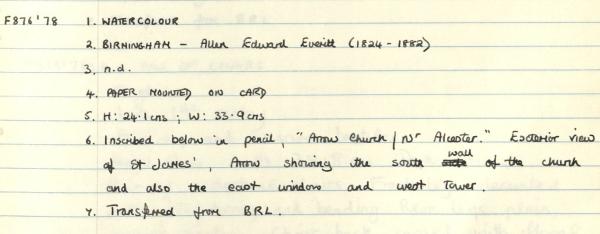 F876'78 1. WATERCOLOUR
2. BIRMINGHAM - Allen Edward Everitt (1824-1882)
3. n.d.
4. PAPER MOUNTED ON CARD
5. H: 24.1cms ; W: 33.9cms
6. Inscribed below in pencil, "Arrow Church / Nr Alcester." Exterior view
of St James', Arrow showing the south wall of the church
and also the east window and west Tower.
7. Transferred from BRL.